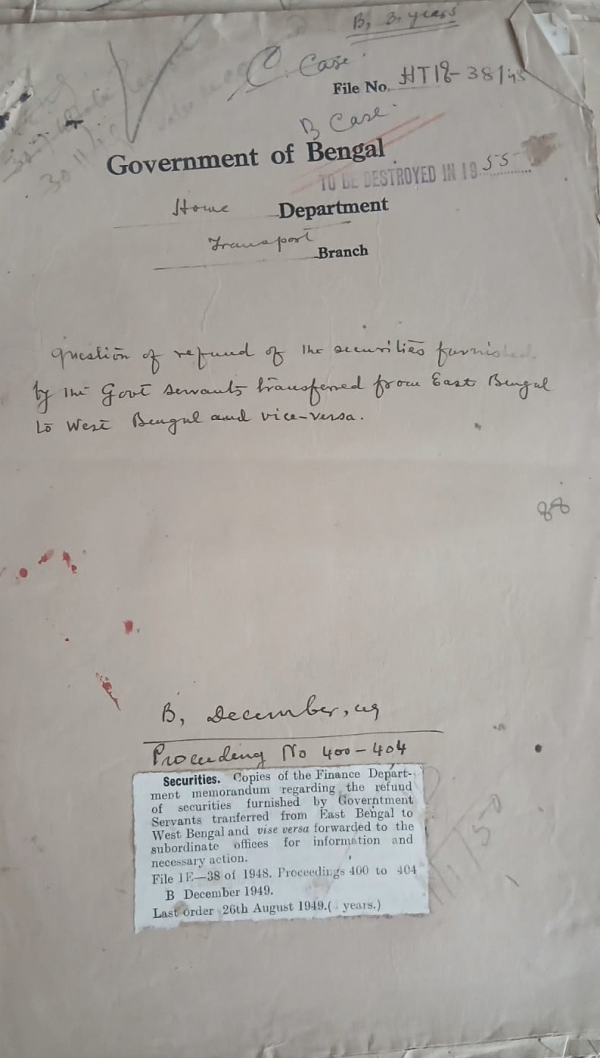 B, 3 years
C. Case.
File No. HT18-38/48
B Case.
Government of Bengal
TO BE DESTROYED IN 1955
Home Department
Transport Branch
Question of refund of the securities furnished
by the Govt servants transferred from East Bengal
to West Bengal and vice-versa.
B, December, 49
Proceeding No 400-404
Securities. Copies of the Finance Depart-
ment memorandum regarding the refund
of securities furnished by Governtment
Servants tranferred from East Bengal to
West Bengal and vise versa forwarded to the
subordinate offices for information and
necessary action.
File 1E—38 of 1948. Proceedings 400 to 404
B December 1949.
Last order 26th August 1949.( years.)